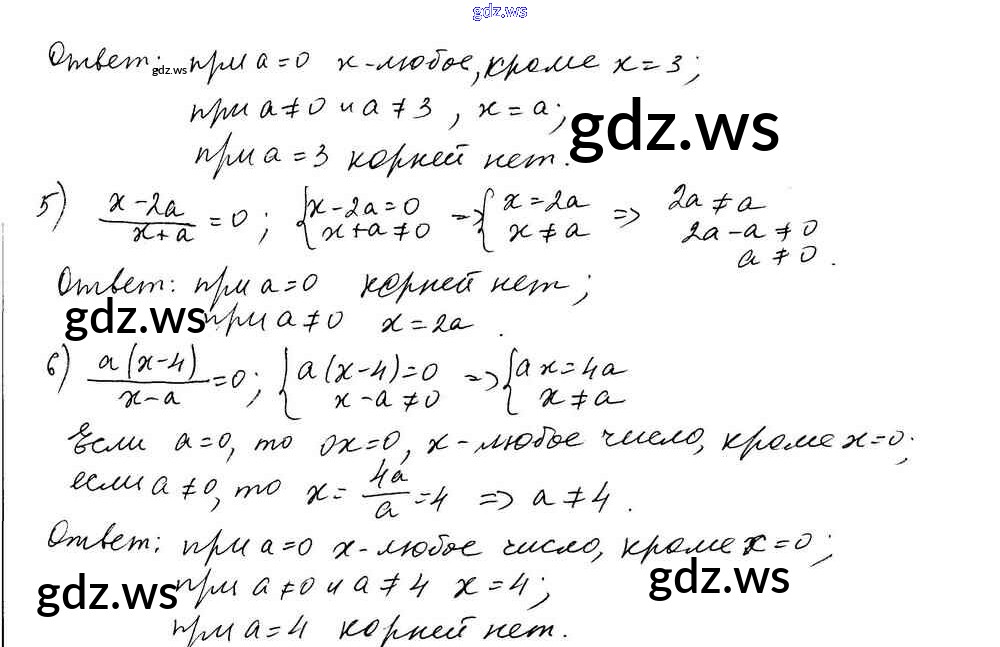 gdz.ws
Ответ: gdz.ws при a=0 x-любое, кроме x=3;
при a≠0 и a≠3, x=a;
gdz.ws
при a=3 корней нет.
5) (x-2a)/(x+a) =0; {x-2a=0 x+a≠0 => {x=2a x≠a => 2a≠a
2a-a≠0
a≠0.
Ответ: при a=0 корней нет;
gdz.ws при a≠0 x=2a.
6) a(x-4)/(x-a) =0; {a(x-4)=0 x-a≠0 => {ax=4a x≠a
Если a=0, то 0x=0, x-любое число, кроме x=0;
если a≠0, то x= 4a/a =4 => a≠4.
Ответ: при a=0 x-любое число, кроме x=0;
gdz.ws при a≠0 и a≠4 x=4; gdz.ws
при a=4 корней нет.